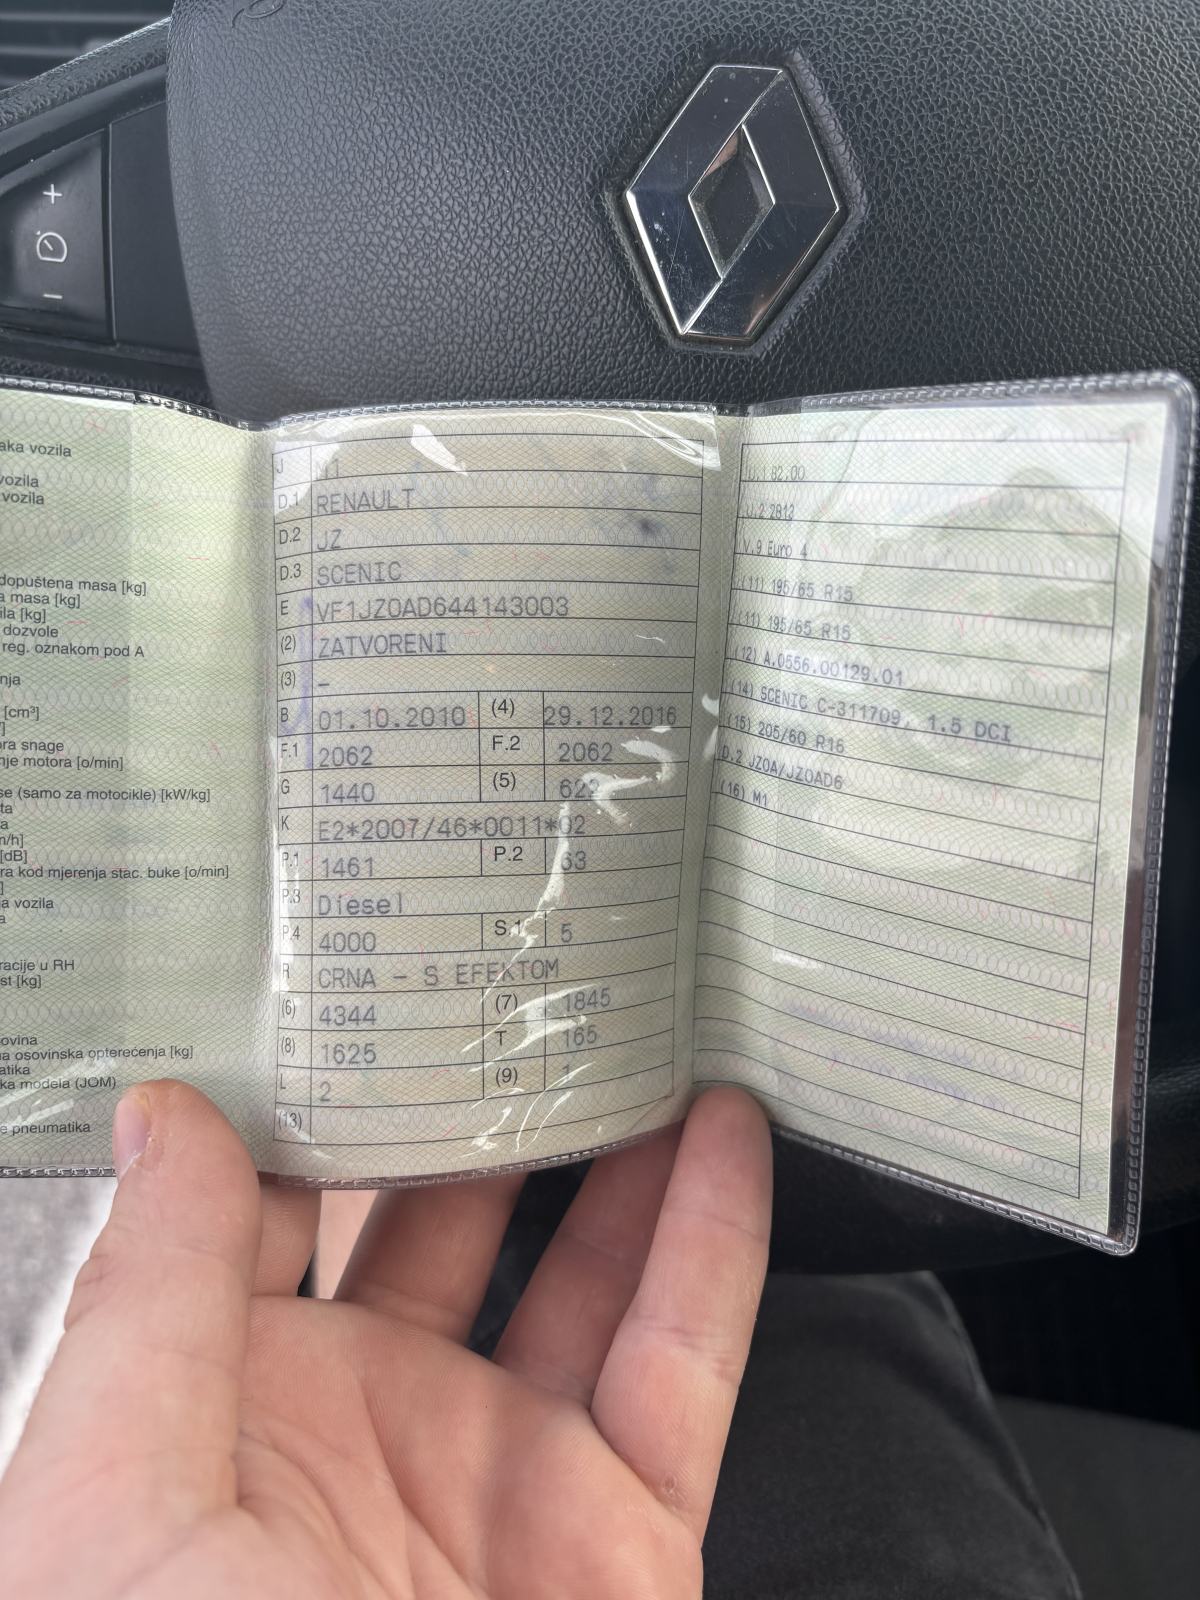 aka vozila
vozila
vozila
dopuštena masa [kg]
a masa [kg]
ila [kg]
dozvole
reg. oznakom pod A
nja
[cm³]
ra snage
nje motora [o/min]
se (samo za motocikle) [kW/kg]
ta
a
m/h]
[dB]
ra kod mjerenja stac. buke [o/min]
]
a vozila
a
racije u RH
st [kg]
ovina
na osovinska opterećenja [kg]
atika
ka modela (JOM)
e pneumatika
J M1
D.1 RENAULT
D.2 JZ
D.3 SCENIC
E VF1JZ0AD644143003
(2) ZATVORENI
(3) –
B 01.10.2010 (4) 29.12.2016
F.1 2062 F.2 2062
G 1440 (5) 622
K E2*2007/46*0011*02
P.1 1461 P.2 63
P.3 Diesel
P.4 4000 S.1 5
R CRNA – S EFEKTOM
(6) 4344 (7) 1845
(8) 1625 T 165
L 2 (9) 1
(13)
U.1 82.00
U.2 2813
V.9 Euro 4
(11) 195/65 R15
(11) 195/65 R15
(12) A.0556.00129.01
(14) SCENIC C-311709, 1.5 DCI
(15) 205/60 R16
D.2 JZ0A/JZ0AD6
(16) M1